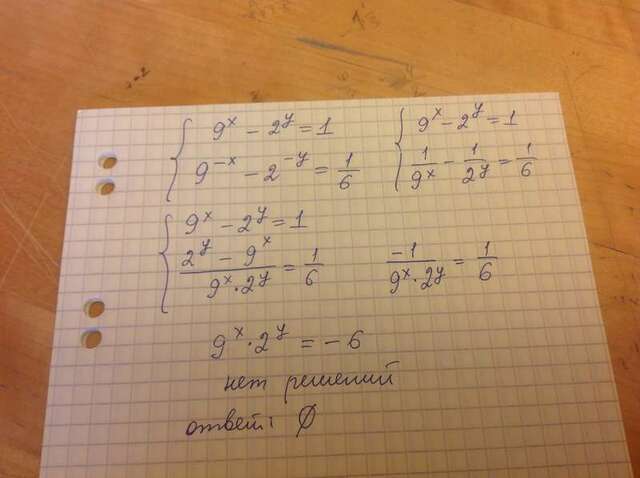 { 9^x − 2^y = 1
9^{−x} − 2^{−y} = 1/6
{ 9^x − 2^y = 1
1/9^x − 1/2^y = 1/6
{ 9^x − 2^y = 1
(2^y − 9^x)/(9^x · 2^y) = 1/6
−1/(9^x · 2^y) = 1/6
9^x · 2^y = −6
нет решений
ответ: ∅